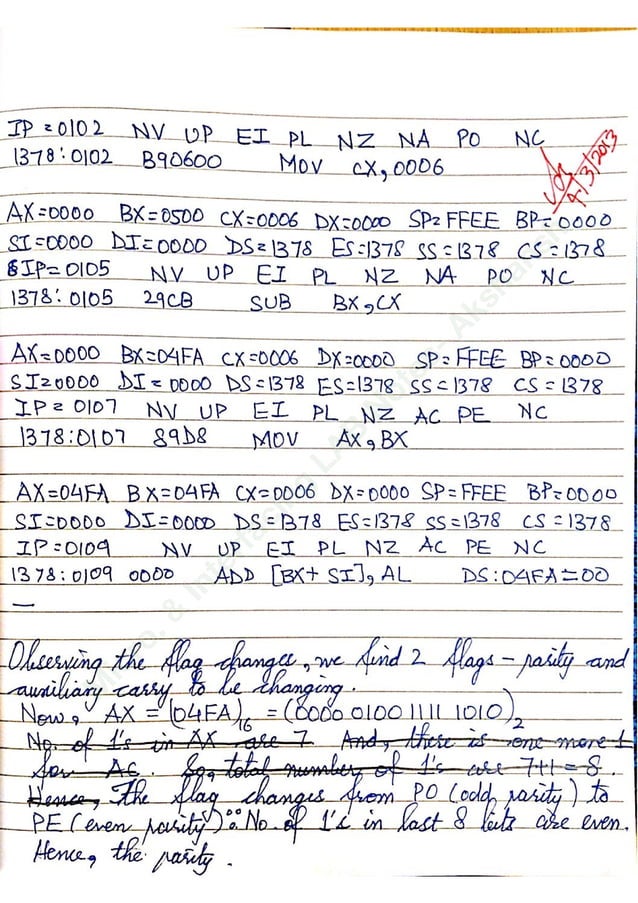 IP = 0102 NV UP EI PL NZ NA PO NC
1378:0102 B90600 MOV CX, 0006
4/3/2013
AX=0000 BX=0500 CX=0006 DX=0000 SP=FFEE BP=0000
SI=0000 DI=0000 DS=1378 ES=1378 SS=1378 CS=1378
IP=0105 NV UP EI PL NZ NA PO NC
1378:0105 29CB SUB BX,CX
AX=0000 BX=04FA CX=0006 DX=0000 SP=FFEE BP=0000
SI=0000 DI=0000 DS=1378 ES=1378 SS=1378 CS=1378
IP=0107 NV UP EI PL NZ AC PE NC
1378:0107 89D8 MOV AX,BX
AX=04FA BX=04FA CX=0006 DX=0000 SP=FFEE BP=0000
SI=0000 DI=0000 DS=1378 ES=1378 SS=1378 CS=1378
IP=0109 NV UP EI PL NZ AC PE NC
1378:0109 0000 ADD [BX+SI],AL DS:04FA=00
—
Observing the flag changes, we find 2 flags - parity and
auxiliary carry to be changing.
Now, AX = (04FA)16 = (0000 0100 1111 1010)2
No. of 1's in AX are 7 And, there is one more 1
for AC. So, total number of 1's are 7+1=8.
Hence, The flag changes from PO (odd parity) to
PE (even parity) ∵ No. of 1's in last 8 bits are even.
Hence, the parity.